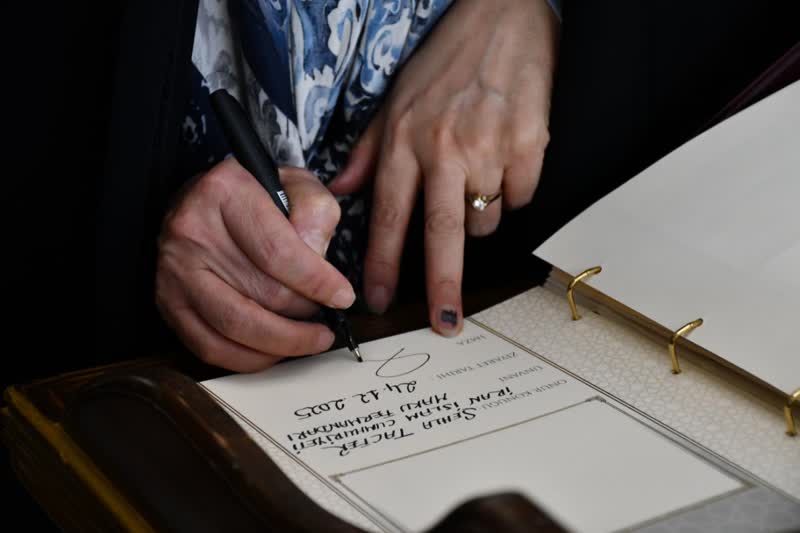 ONUR KONUĞU ŞEHLA TACFER
ÜNVANI İRAN İSLAM CUMHURİYETİ
MAKU FERMANDARI
ZİYARET TARİHİ : 24.12.2025
İMZA